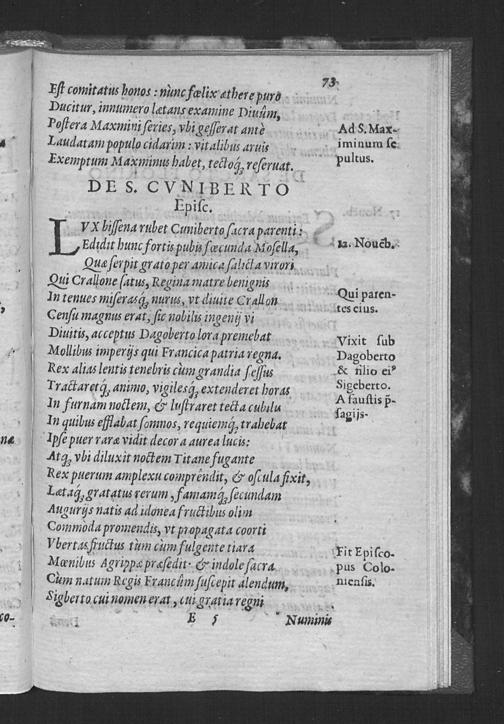 73
Est comitatus honos : nùnc fœlix æthere puro
Ducitur, innumero lætans examine Diuûm,
Postera Maxmini series, vbi gesserat antè
Laudatam populo cidarim : vitalibus aruis
Exemptum Maxminus habet, tectoq́; reseruat.
Ad S. Max-
iminum se
pultus.
DE S. CVNIBERTO
Episc.
LVX bissena rubet Cuniberto sacra parenti :
Edidit hunc fortis pubis fœcunda Mosella,
Quæ serpit grato per amica salicta virori
12. Nouēb.
Qui Crallone satus, Regina matre benignis
In tenues miserasq́; nurus, vt diuite Crallon
Censu magnus erat, sic nobilis ingenij vi
Qui paren-
tes eius.
Diuitis, acceptus Dagoberto lora premebat
Mollibus imperijs qui Francica patria regna.
Rex alias lentis tenebris cùm grandia sessus
Tractaretq́; animo, vigilesq́; extenderet horas
In furnam noctem, & lustraret tecta cubilu
In quibus efflabat somnos, requiemq́; trahebat
Vixit sub
Dagoberto
& filio eiꝰ
Sigeberto.
A faustis p̄-
sagijs.
Ipse puer raræ vidit decora aurea lucis:
Atq́; vbi diluxit noctem Titane fugante
Rex puerum amplexu comprêndit, & oscula fixit,
Lætaq́; gratatus rerum, famamq́; secundam
Augurijs natis ad idonea fructibus olim
Commoda promendis, vt propagata coorti
Vbertas fructus tùm cùm fulgente tiara
Mœnibus Agrippæ præsedit. & indole sacra
Cùm natum Regis Francûm suscepit alendum,
Sigberto cui nomen erat, cui gratia regni
Fit Episco-
pus Colo-
niensis.
E 5
Numinis